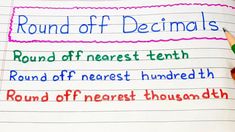 Round off Decimals
Round off nearest tenth
Round off nearest hundredth
Round off nearest thousandth